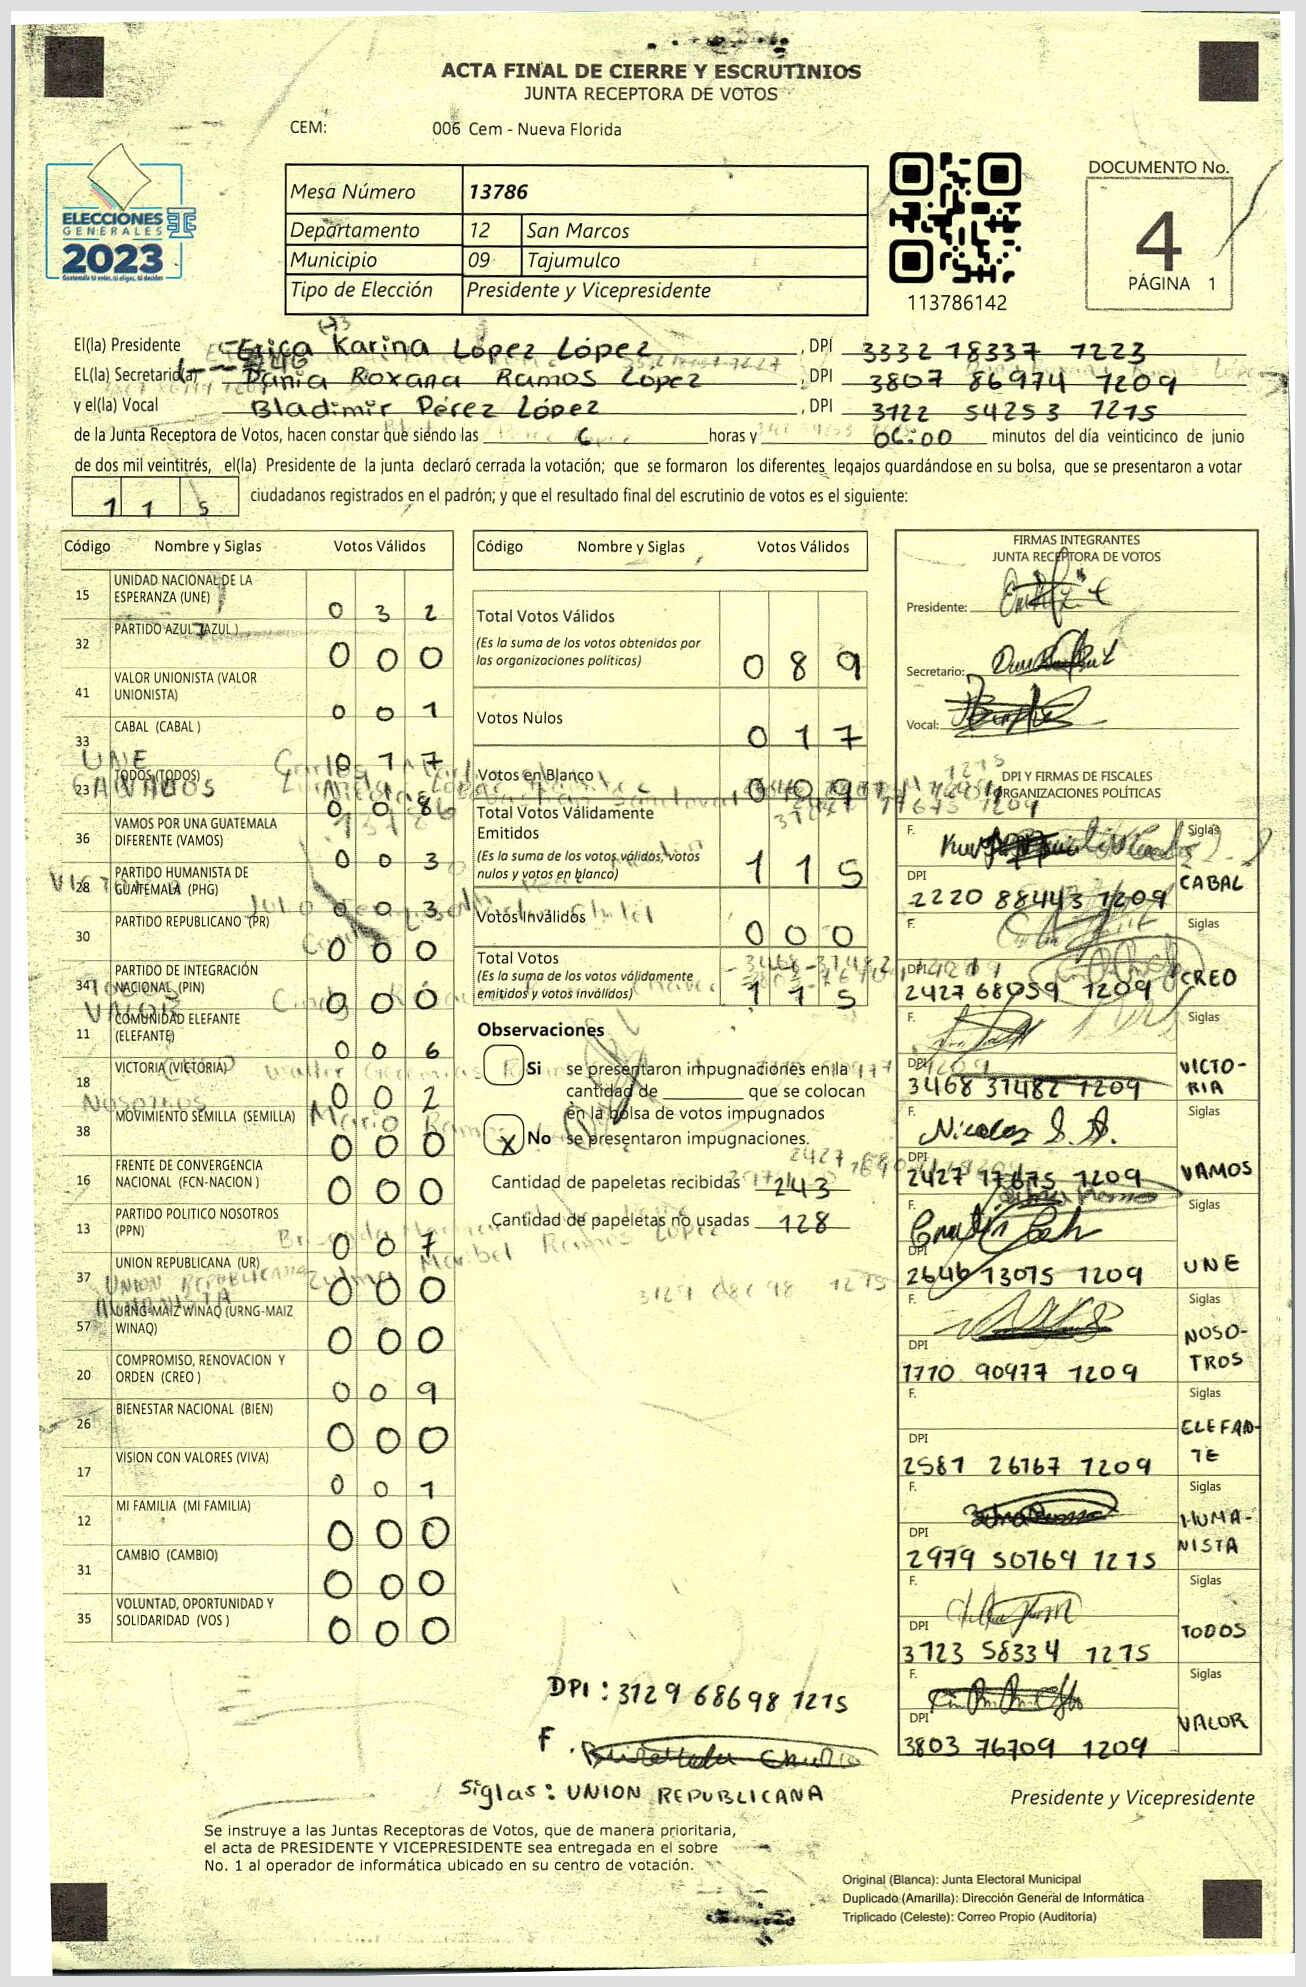 ACTA FINAL DE CIERRE Y ESCRUTINIOS
JUNTA RECEPTORA DE VOTOS
CEM: 006 Cem - Nueva Florida
ELECCIONES
GENERALES
2023
Mesa Número 13786
Departamento 12 San Marcos
Municipio 09 Tajumulco
Tipo de Elección Presidente y Vicepresidente
113786142
DOCUMENTO No.
4
PÁGINA 1
El(la) Presidente Erica Karina López López, DPI 3332 18337 1223
EL(la) Secretario(a) Dania Roxana Ramos López, DPI 3807 86974 1209
y el(la) Vocal Bladimir Pérez López, DPI 3122 54253 1215
de la Junta Receptora de Votos, hacen constar que siendo las 6 horas y 06:00 minutos del día veinticinco de junio
de dos mil veintitrés, el(la) Presidente de la junta declaró cerrada la votación; que se formaron los diferentes legajos guardándose en su bolsa, que se presentaron a votar
1 1 5 ciudadanos registrados en el padrón; y que el resultado final del escrutinio de votos es el siguiente:
Código Nombre y Siglas Votos Válidos
15 UNIDAD NACIONAL DE LA ESPERANZA (UNE) 0 3 2
32 PARTIDO AZUL (AZUL ) 0 0 0
41 VALOR UNIONISTA (VALOR UNIONISTA) 0 0 1
33 CABAL (CABAL ) 0 1 7
23 TODOS (TODOS) 0 0 8
36 VAMOS POR UNA GUATEMALA DIFERENTE (VAMOS) 0 0 3
28 PARTIDO HUMANISTA DE GUATEMALA (PHG) 0 0 3
30 PARTIDO REPUBLICANO (PR) 0 0 0
34 PARTIDO DE INTEGRACIÓN NACIONAL (PIN) 0 0 0
11 COMUNIDAD ELEFANTE (ELEFANTE) 0 0 6
18 VICTORIA (VICTORIA) 0 0 2
38 MOVIMIENTO SEMILLA (SEMILLA) 0 0 0
16 FRENTE DE CONVERGENCIA NACIONAL (FCN-NACION ) 0 0 0
13 PARTIDO POLITICO NOSOTROS (PPN) 0 0 7
37 UNION REPUBLICANA (UR) 0 0 0
57 URNG-MAIZ WINAQ (URNG-MAIZ WINAQ) 0 0 0
20 COMPROMISO, RENOVACION Y ORDEN (CREO ) 0 0 9
26 BIENESTAR NACIONAL (BIEN) 0 0 0
17 VISION CON VALORES (VIVA) 0 0 1
12 MI FAMILIA (MI FAMILIA) 0 0 0
31 CAMBIO (CAMBIO) 0 0 0
35 VOLUNTAD, OPORTUNIDAD Y SOLIDARIDAD (VOS ) 0 0 0
Código Nombre y Siglas Votos Válidos
Total Votos Válidos
(Es la suma de los votos obtenidos por
las organizaciones políticas) 0 8 9
Votos Nulos 0 1 7
Votos en Blanco 0 0 9
Total Votos Válidamente
Emitidos
(Es la suma de los votos válidos, votos
nulos y votos en blanco) 1 1 5
Votos Inválidos 0 0 0
Total Votos
(Es la suma de los votos válidamente
emitidos y votos inválidos) 1 1 5
Observaciones
Si se presentaron impugnaciones en la
cantidad de ________ que se colocan
en la bolsa de votos impugnados
X No se presentaron impugnaciones.
Cantidad de papeletas recibidas 243
Cantidad de papeletas no usadas 128
FIRMAS INTEGRANTES
JUNTA RECEPTORA DE VOTOS
Presidente:
Secretario:
Vocal:
DPI Y FIRMAS DE FISCALES
ORGANIZACIONES POLÍTICAS
F. Siglas
DPI 2220 88443 1209 CABAL
F. Siglas
DPI 2427 68059 1209 CREO
F. Siglas
DPI 3468 31482 1209 VICTO-RIA
F. Nicolas S. A. Siglas
DPI 2427 17675 1209 VAMOS
F. Siglas
DPI 2646 13015 1209 UNE
F. Siglas
DPI 1710 90977 1209 NOSO-TROS
F. Siglas
DPI 2581 26167 1209 ELEFAN-TE
F. Siglas
DPI 2979 50769 1215 HUMA-NISTA
F. Siglas
DPI 3723 58334 1215 TODOS
F. Siglas
DPI 3803 76709 1209 VALOR
DPI: 3129 68698 1215
F.
Siglas: UNION REPUBLICANA
Presidente y Vicepresidente
Se instruye a las Juntas Receptoras de Votos, que de manera prioritaria,
el acta de PRESIDENTE Y VICEPRESIDENTE sea entregada en el sobre
No. 1 al operador de informática ubicado en su centro de votación.
Original (Blanca): Junta Electoral Municipal
Duplicado (Amarilla): Dirección General de Informática
Triplicado (Celeste): Correo Propio (Auditoría)